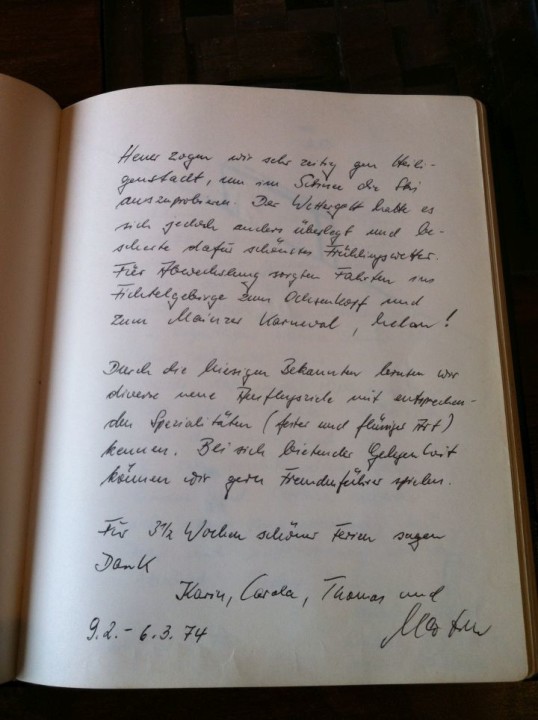 Heuer zogen wir sehr zeitig gen Heili-
genstadt, um im Schnee die Ski
auszuprobieren. Der Wettergott hatte es
sich jedoch anders überlegt und be-
scherte dafür schönstes Frühlingswetter.
Für Abwechslung sorgten Fahrten ins
Fichtelgebirge zum Ochsenkopf und
zum Mainzer Karneval, helau!
Durch die hiesigen Bekannten lernten wir
diverse neue Ausflugsziele mit entsprechen-
den Spezialitäten (fester und flüssiger Art)
kennen. Bei sich bietender Gelegenheit
können wir gern Fremdenführer spielen.
Für 3 1/2 Wochen schöner Ferien sagen
Dank
Karin, Carola, Thomas und
9.2.- 6.3.74